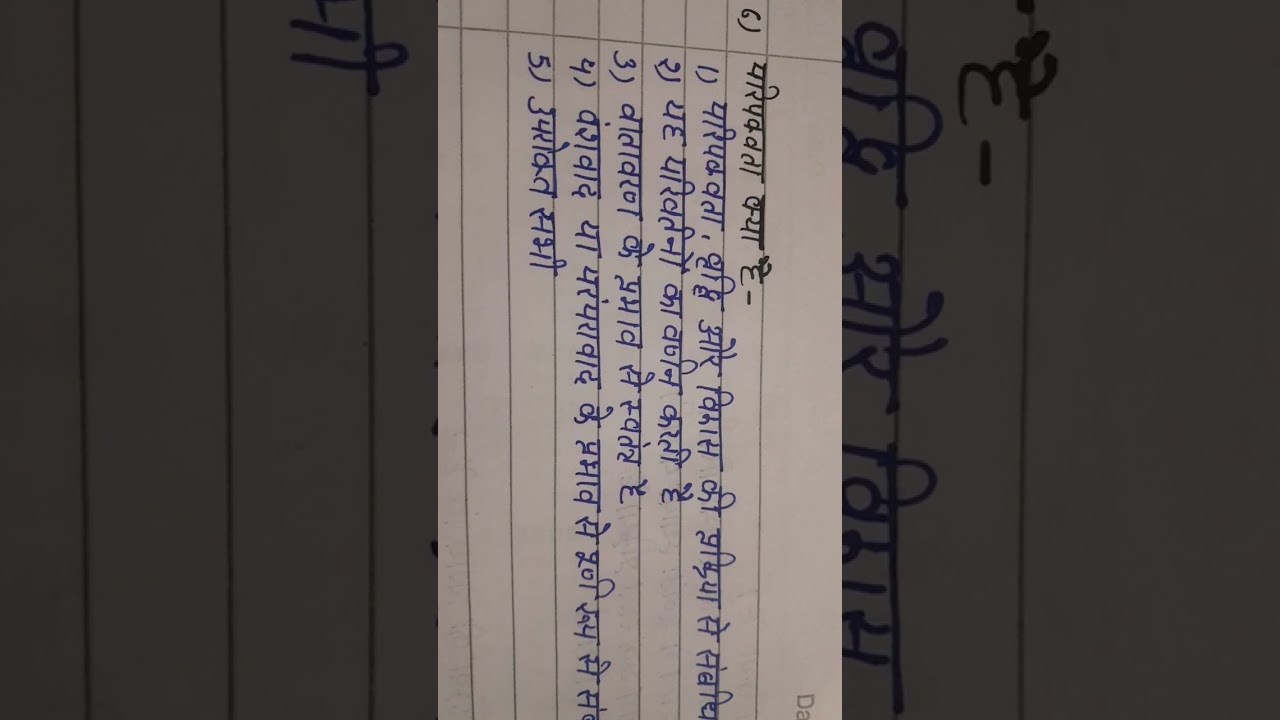 6) परिपक्वता क्या है -
1) परिपक्वता, वृद्धि और विकास की प्रक्रिया से संबंधि
२) यह परिवर्तनों का वर्णन करती है
3) वातावरण के प्रभाव से स्वतंत्र है
4) वंशवाद या परंपरावाद के प्रभाव से पूर्ण रूप से संब
5) उपरोक्त सभी
Da